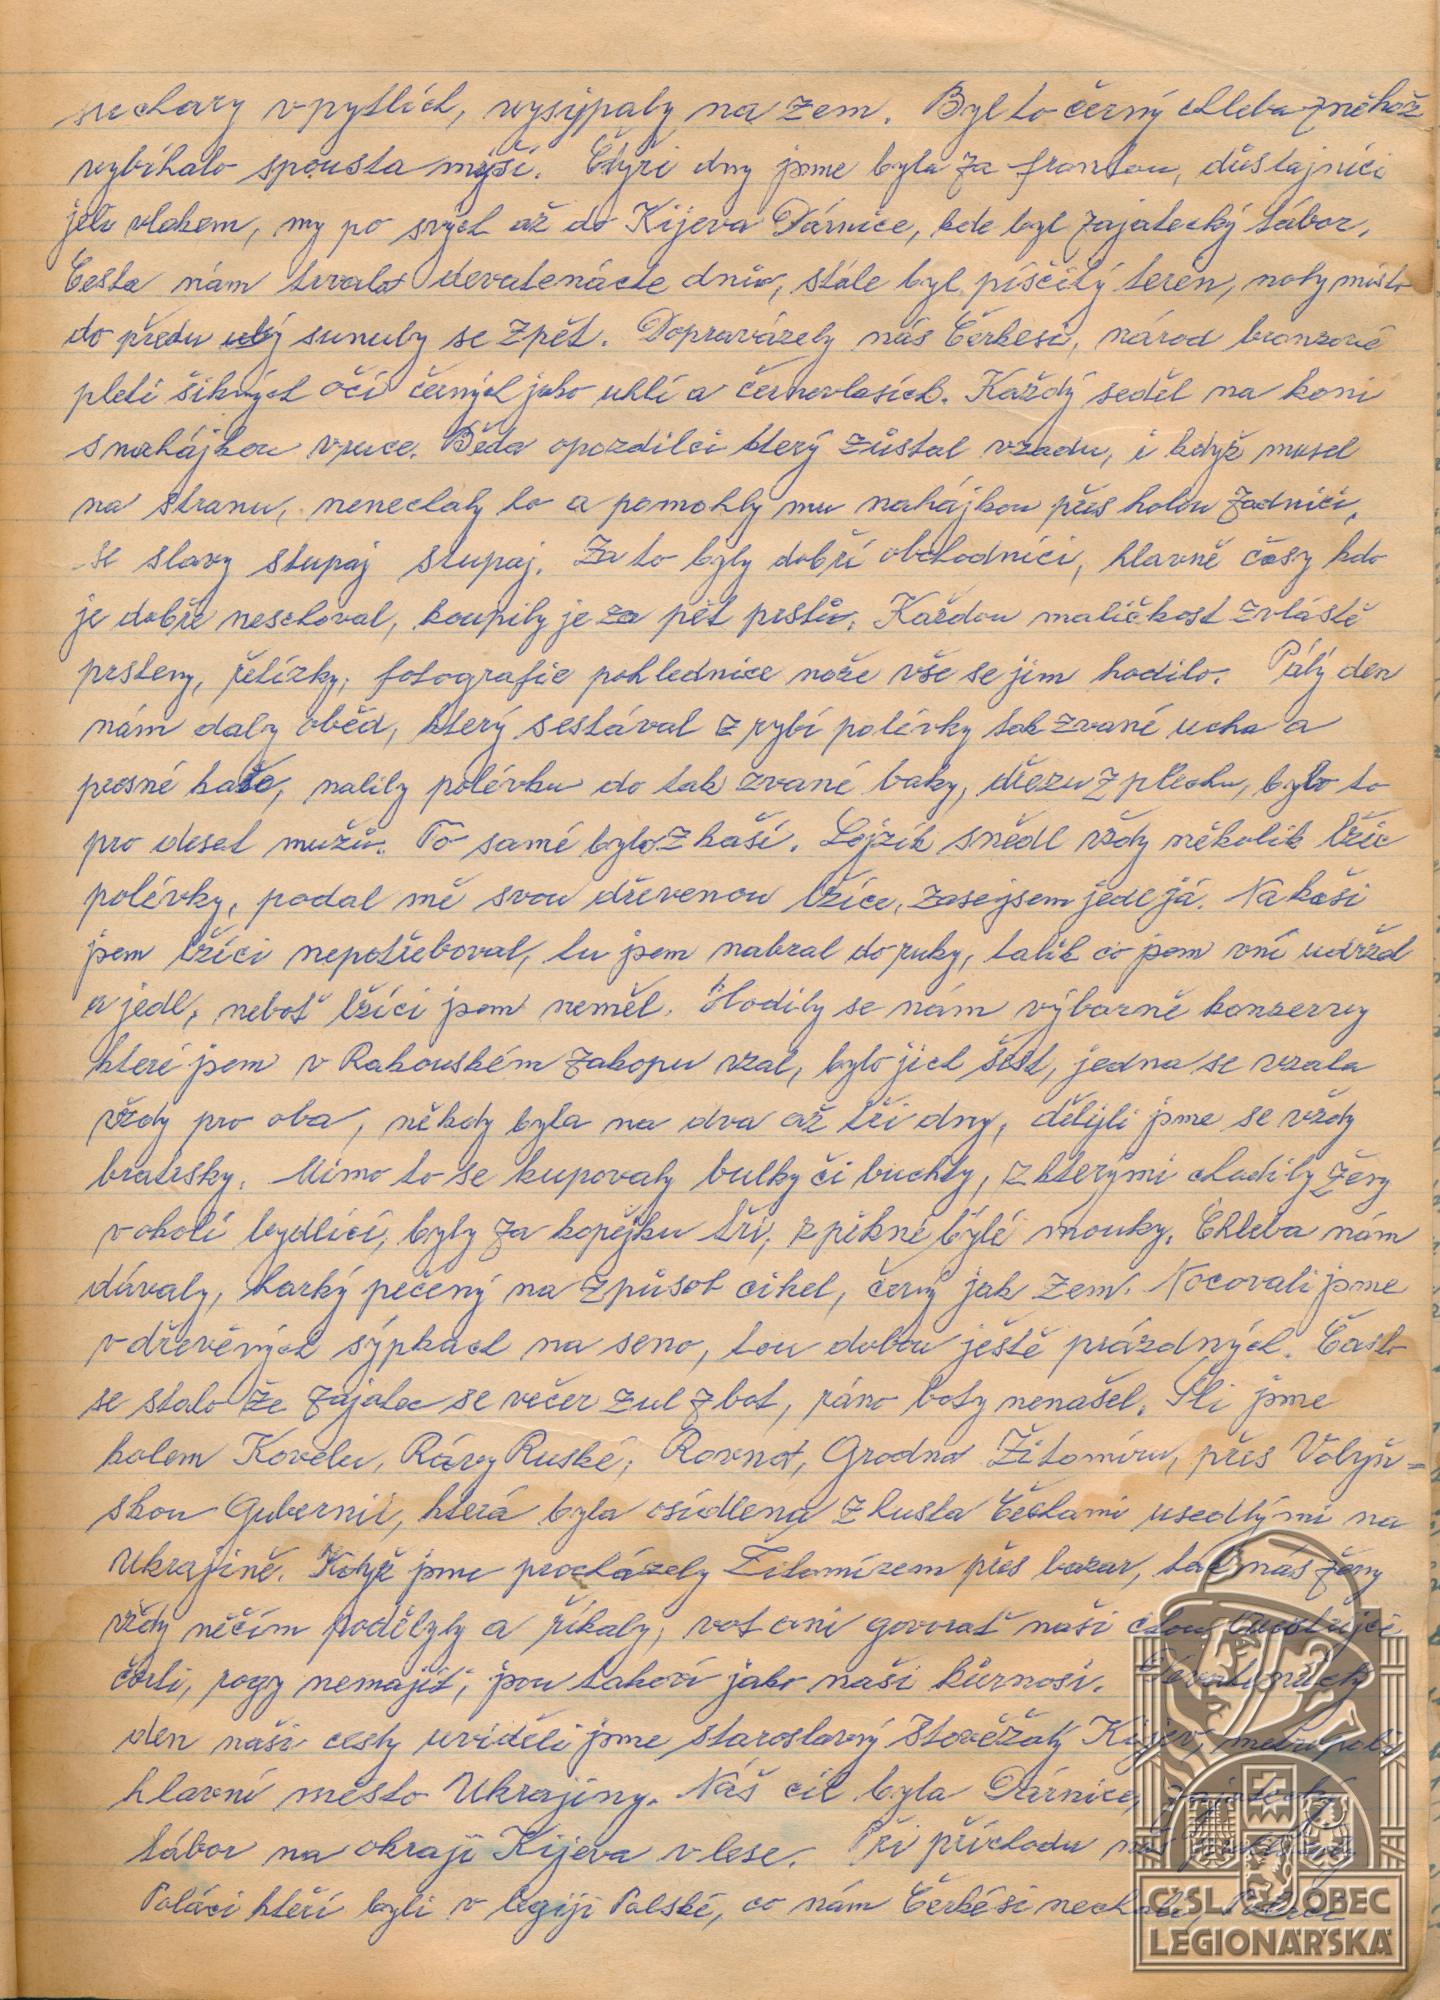 suchary v pytlích, vysýpaly na zem. Byl to černý chleba z něhož
vybíhalo spousta myší. Čtyři dny jsme byla za frontou, důstajníci
jeli vlakem, my po svých až do Kijeva Dárnice, kde byl zajatecký tábor,
Cesta nám trvala devatenácte dnů, stále byl písčitý teren, nohy místo
do předu sunuly se zpět. Dopravázely nás Čerkesi, národ bronzové
pleti šikmých očí černých jako uhlí a černovlasích. Každý seděl na koni
s nahájkou v ruce. Běda opozdilci který zůstal vzadu, i když musel
na stranu, nenechaly to a pomohly mu nahájkou přes holou zadnici,
se slavy stupaj stupaj. Za to byly dobří obchodníci, hlavně časy kdo
je dobře neschoval, koupily je za pět prstů. Každou maličkost zvláště
prsteny, řetízky, fotografie pohlednice nože vše se jim hodilo. Pátý den
nám daly oběd, který sestával z rybí polévky tak zvané ucha a
prosné kaše, nalily polévku do tak zvané baky, dřezu z plechu, bylo to
pro deset mužů. To samé bylo z kaší. Lojzík snědl vždy několik lžic
polévky, podal mě svou dřevenou lžíce, zase jsem jedl já. Na kaši
jsem lžíci nepotřeboval, tu jsem nabral do ruky, tolik co jsem v ní udržel
a jedl, neboť lžíci jsem neměl. Hodily se nám výborně konzervy
které jsem v Rakouském zákopu vzal, bylo jich šest, jedna se vzala
vždy pro oba, někdy byla na dva až tři dny, dělijli jsme se vždy
bratrsky. Mimo to se kupovaly bulky či buchty, z kterými chodily ženy
v okolí bydlící, byly za kopějku tři, z pěkné býlé mouky. Chleba nám
dávaly, horký pečený na způsob cihel, černý jak zem. Nocovali jsme
v dřevěných sýpkach na seno, tou dobou ještě prázdných. Často
se stalo že zajatec se večer zul z bot, ráno boty nenašel. Šli jsme
kolem Kovelu, Rávy Ruské, Rovna, Grodna Žitomíru, přes Volyň=
skou Gubernii, která byla osídlena z husta Čechami usedlými na
Ukrajině. Když jsme procházely Žitomírem přes bazar, tak nás ženy
vždy něčím podělyly a říkaly, vot oni govorať naši
čorti, rogy nemajiť, jsou takoví jako naši kůrnosi. Devatenáctý
den naši cesty uviděli jsme staroslavný stověžatý Kijev, metropoli
hlavní mesto Ukrajiny. Náš cíl byla Dárnice, zajatecký
tábor na okraji Kijeva v lese. Při příchodu nás
Poláci kteří byli v legiji Polské, co nám Čerkési nechali,
ČSL. OBEC
LEGIONÁŘSKÁ